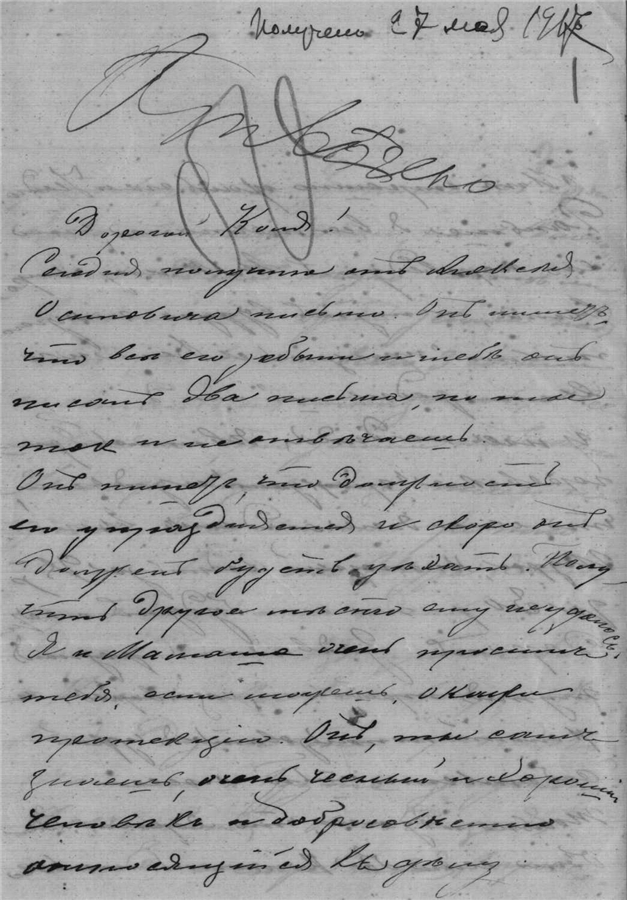 Получено 27 мая 1917
Отвѣчено
Дорогой Коля!
Сегодня получила отъ Алексѣя
Осиповича письмо. Онъ пишетъ
что всѣ его забыли и тебѣ онъ
писалъ два письма, но ты
такъ и не отвѣчаешь.
Онъ пишетъ, что должность
его упраздняется и скоро онъ
долженъ будетъ уѣхать. Полу-
чить другое мѣсто ему не удалось.
Я и Мамаша очень просимъ
тебя, если можешь, окажи
протекцію. Онъ, ты самъ
знаешь, очень честный и хорошій
человѣкъ и добросовѣстно
относящійся къ дѣлу.